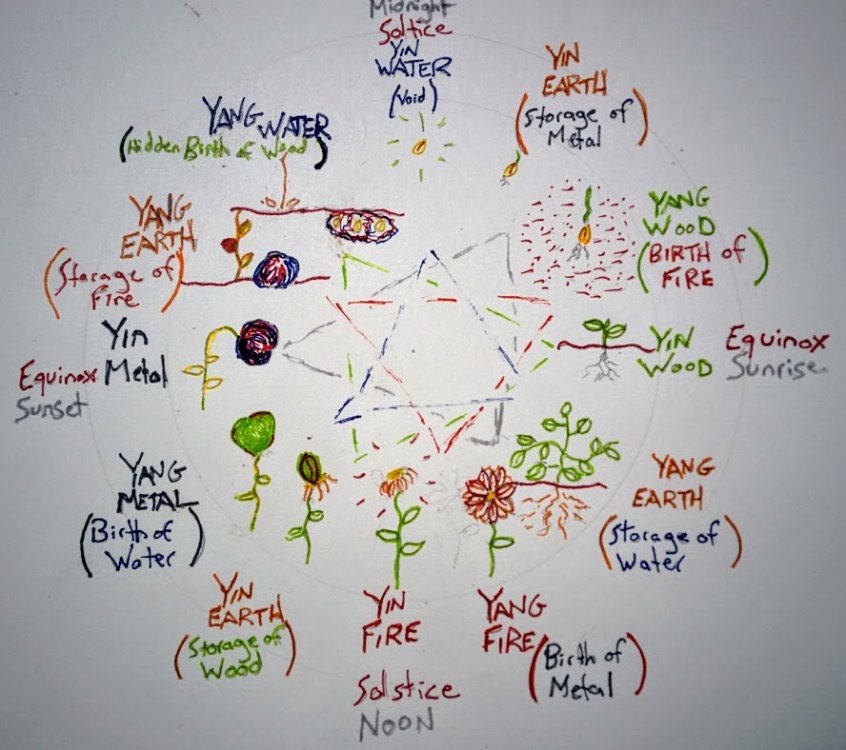 Midnight
Soltice
YIN
WATER
(Void)
YIN
EARTH
(Storage of
Metal)
YANG
WOOD
(BIRTH of
FIRE)
YIN
WOOD
Equinox
Sunrise
YANG
EARTH
(Storage of
Water)
YANG
FIRE
(Birth of
Metal)
YIN
FIRE
Solstice
NOON
YIN
EARTH
(Storage of
Wood)
YANG
METAL
(Birth of
Water)
Yin
Metal
Equinox
Sunset
YANG
EARTH
(Storage of
Fire)
YANG WATER
(Hidden Birth of Wood)